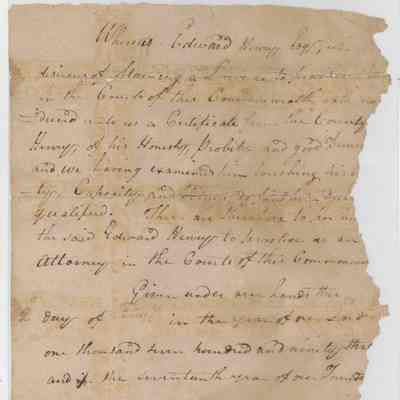 Whereas Edward Henry Esqr, is
desirous of obtaining a Licence to practice
in the Courts of this Commonwealth, hath pro
duced unto us a Certificate from the County
Henry, of his Honesty, Probity and good
and we having examined him touching his
Capacity and
qualified. These are therefore to
the said Edward Henry to practice as an
Attorney in the Courts of this Commonwea
Given under our hands this
day of in the year of our Lord
one thousand seven hundred and ninety three
and in the seventeenth year of our